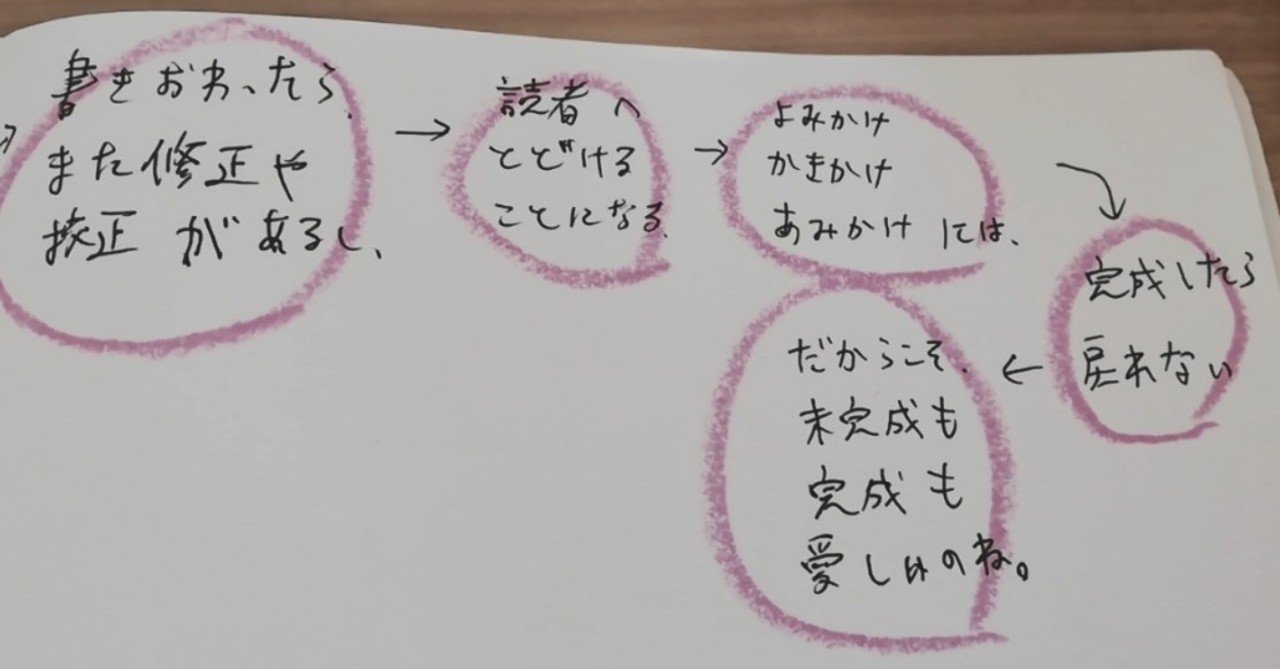 書きおわったら
また修正や
校正があるし、
→
読者へ
とどける
ことになる。
→
よみかけ
かきかけ
あみかけには、
完成したら
戻れない
←
だからこそ、
未完成も
完成も
愛しいのね。